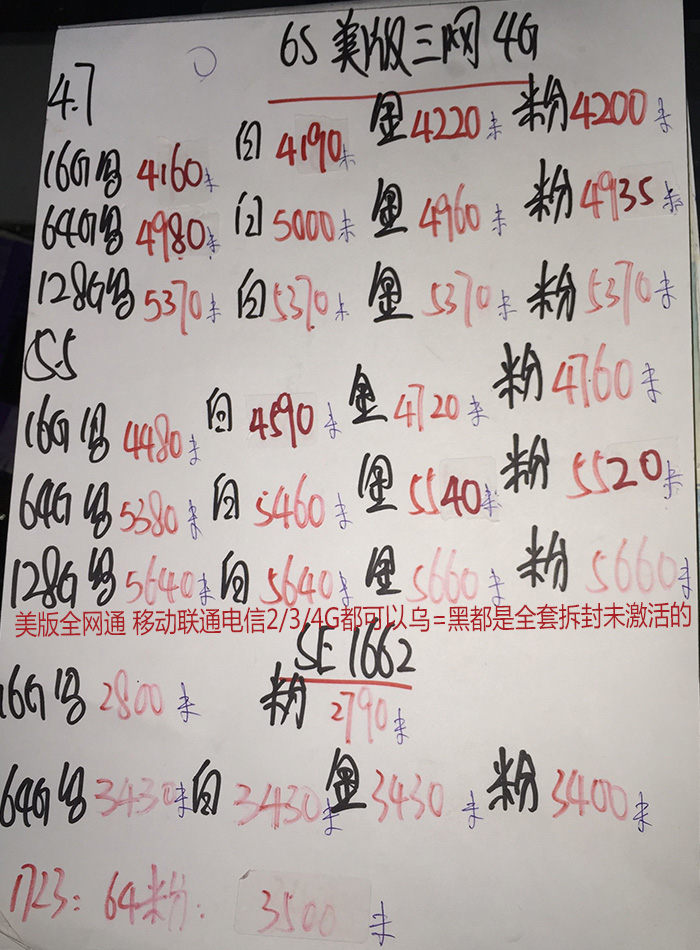 6S 美版三网 4G
4.7
16G乌 4160未 白 4190未 金 4220未 粉 4200未
64G乌 4980未 白 5000未 金 4960未 粉 4935未
128G乌 5370未 白 5370未 金 5370未 粉 5370未
5.5
16G乌 4480未 白 4590未 金 4720未 粉 4760未
64G乌 5380未 白 5460未 金 5540未 粉 5520未
128G乌 5640未 白 5640未 金 5660未 粉 5660未
美版全网通 移动联通电信2/3/4G都可以乌=黑都是全套拆封未激活的
SE 1662
16G乌 2800未 粉 2790未
64G乌 3430未 白 3430未 金 3430未 粉 3400未
1723: 64粉: 3500未